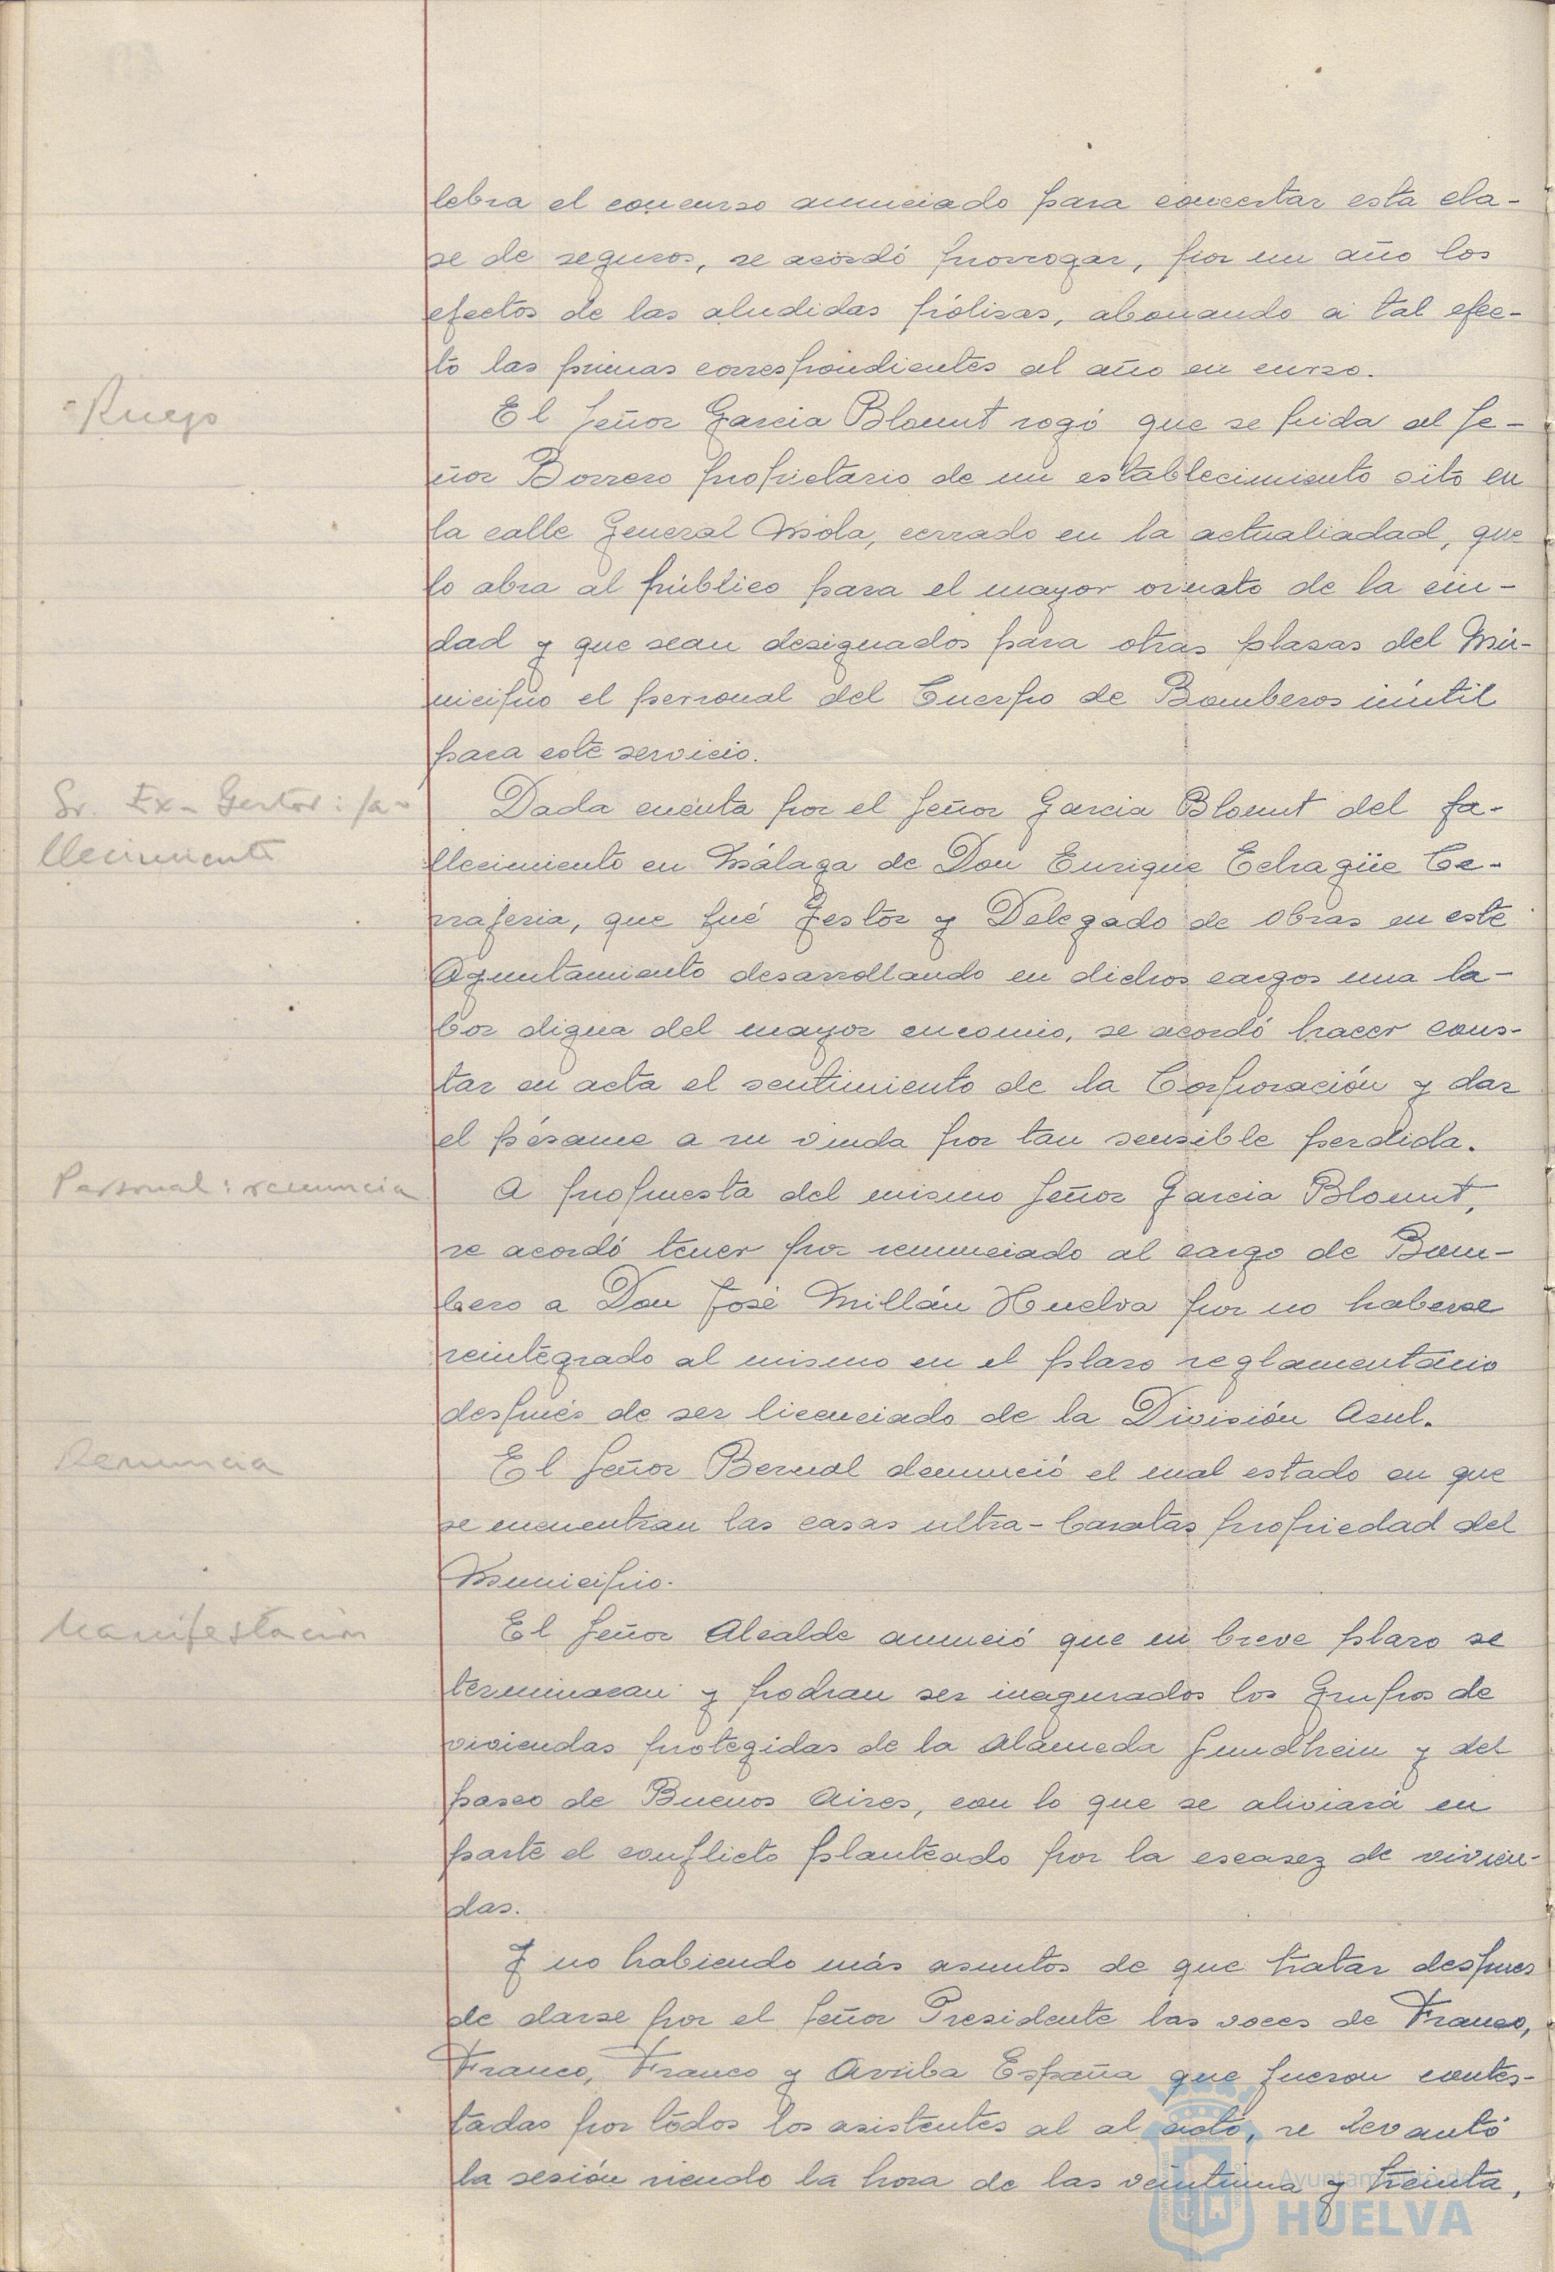 lebra el concurso anunciado para concertar esta cla-
se de seguros, se acordó prorrogar, por un año los
efectos de las aludidas pólizas, abonando a tal efec-
to las primas correspondientes al año en curso.
Ruego
El Señor Garcia Blount rogó que se pida al Se-
ñor Borrero propietario de un establecimiento sito en
la calle General Mola, cerrado en la actualiadad, que
lo abra al público para el mayor ornato de la ciu-
dad y que sean designados para otras plazas del Mu-
nicipio el personal del Cuerpo de Bomberos inútil
para este servicio.
Sr. Ex-Gestor: fa-
llecimiento
Dada cuenta por el Señor Garcia Blount del fa-
llecimiento en Málaga de Don Enrique Echagüe Ce-
rrageria, que fué Gestor y Delegado de obras en este
Ayuntamiento desarrollando en dichos cargos una la-
bor digna del mayor encomio, se acordó hacer cons-
tar en acta el sentimiento de la Corporación y dar
el pésame a su viuda por tan sensible perdida.
Personal: renuncia
A propuesta del mismo Señor Garcia Blount,
se acordó tener por renunciado al cargo de Bom-
bero a Don José Millán Huelva por no haberse
reintegrado al mismo en el plazo reglamentario
después de ser licenciado de la División Azul.
Denuncia
El Señor Bernal denunció el mal estado en que
se encuentran las casas ultra-baratas propiedad del
Municipio.
Manifestación
El Señor Alcalde anunció que en breve plazo se
terminaran y podran ser inagurados los Grupos de
viviendas protegidas de la Alameda Sundhein y del
paseo de Buenos Aires, con lo que se aliviará en
parte el conflicto planteado por la escasez de vivien-
das.
Y no habiendo más asuntos de que tratar despues
de darse por el Señor Presidente las voces de Franco,
Franco, Franco y Arriba España que fueron contes-
tadas por todos los asistentes al al acto, se levantó
la sesión siendo la hora de las veintiuna y treinta,
Ayuntamiento de
HUELVA